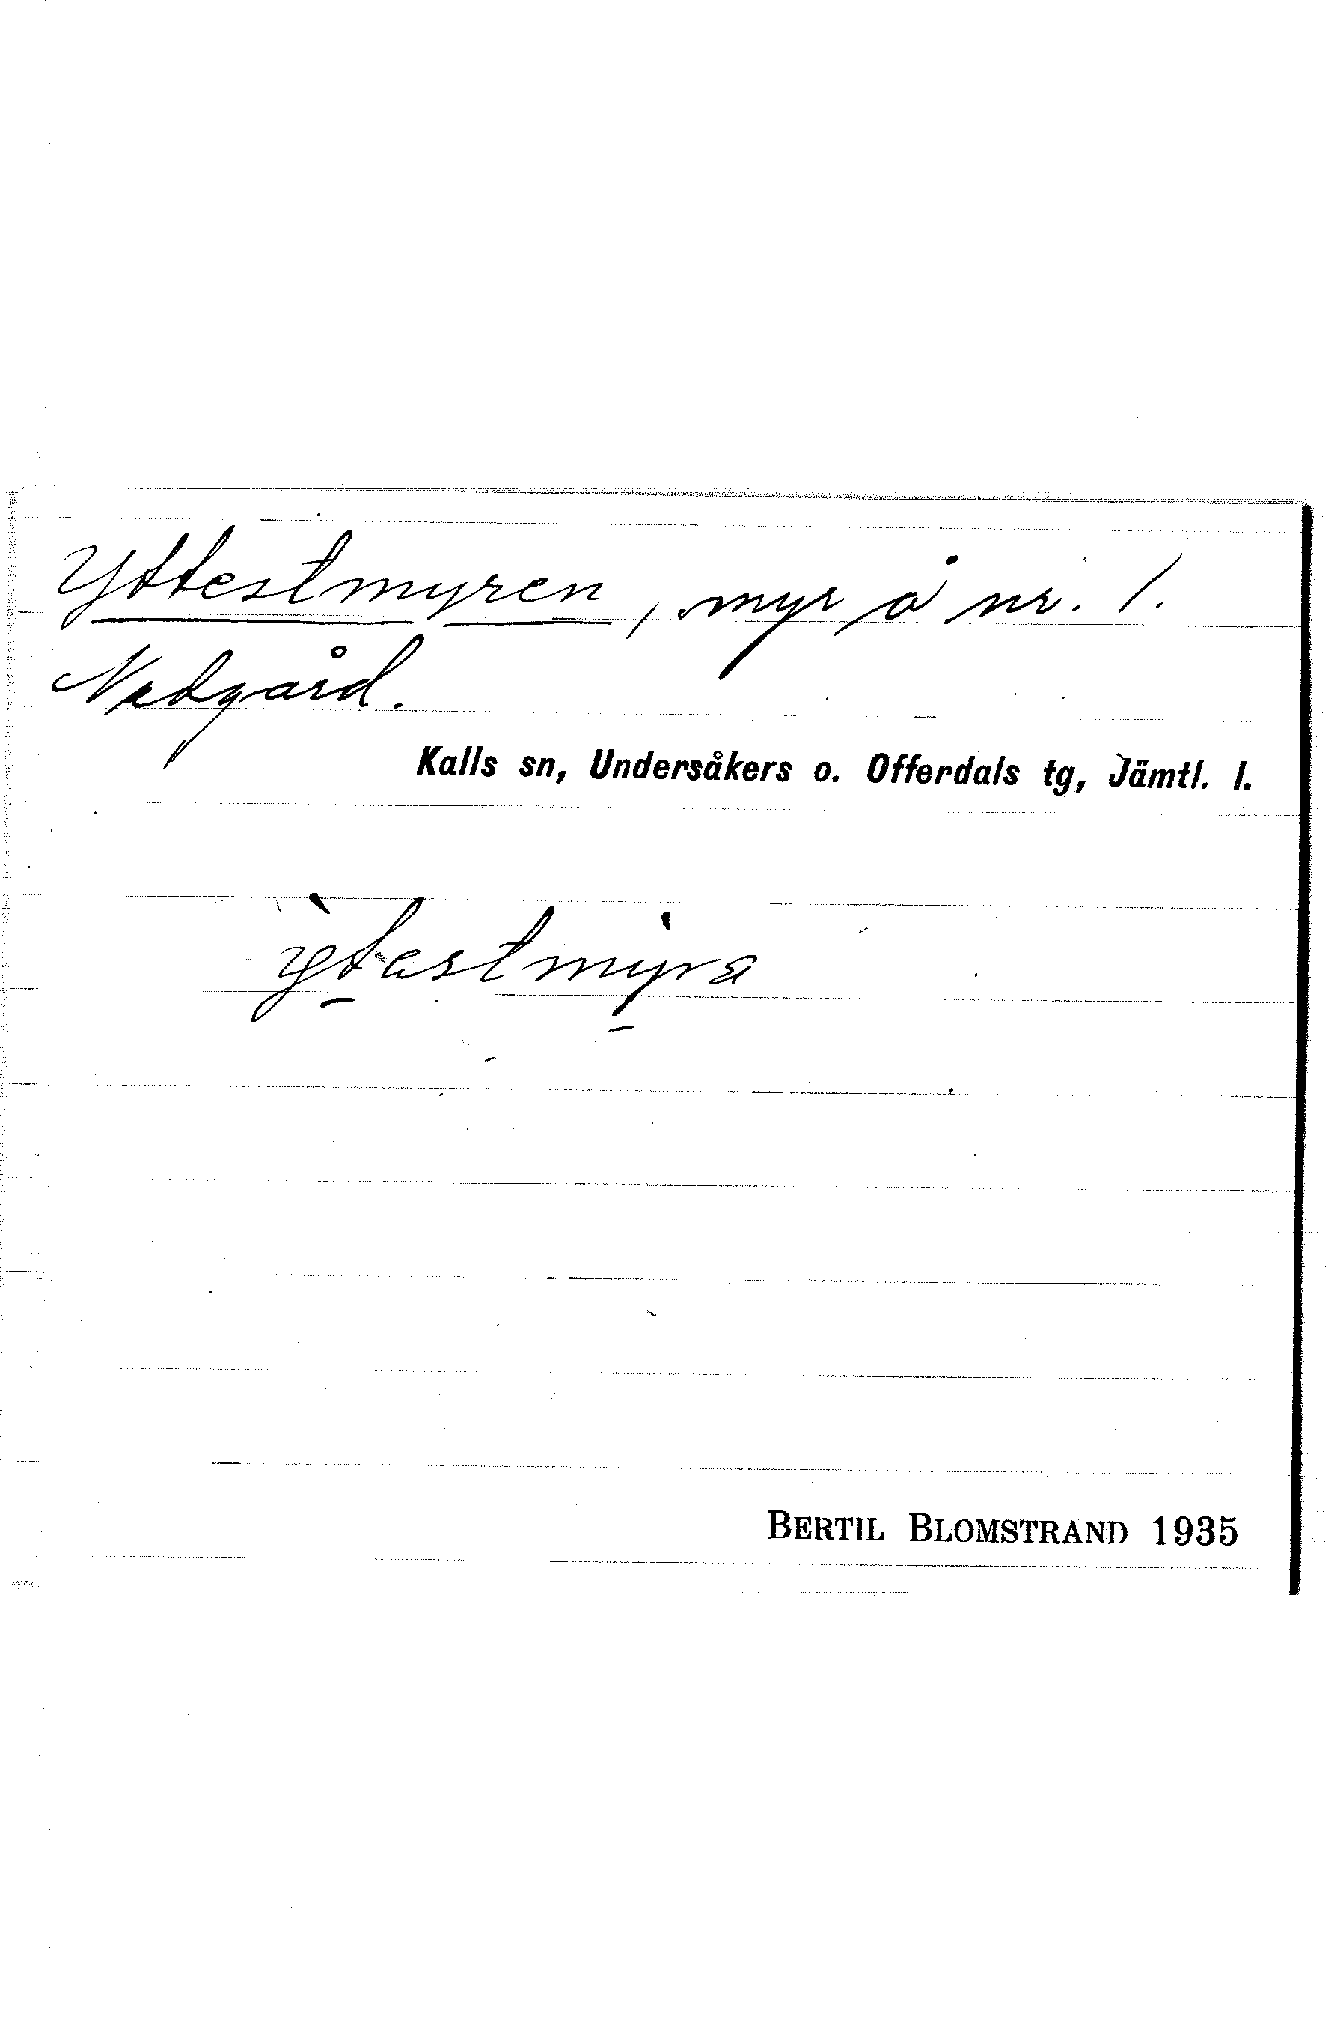 Yttestmyren, myr å nr. 1.
Nedgård.
Kalls sn, Undersåkers o. Offerdals tg, Jämtl. l.
ỳt̠estmy̠ra
BERTIL BLOMSTRAND 1935